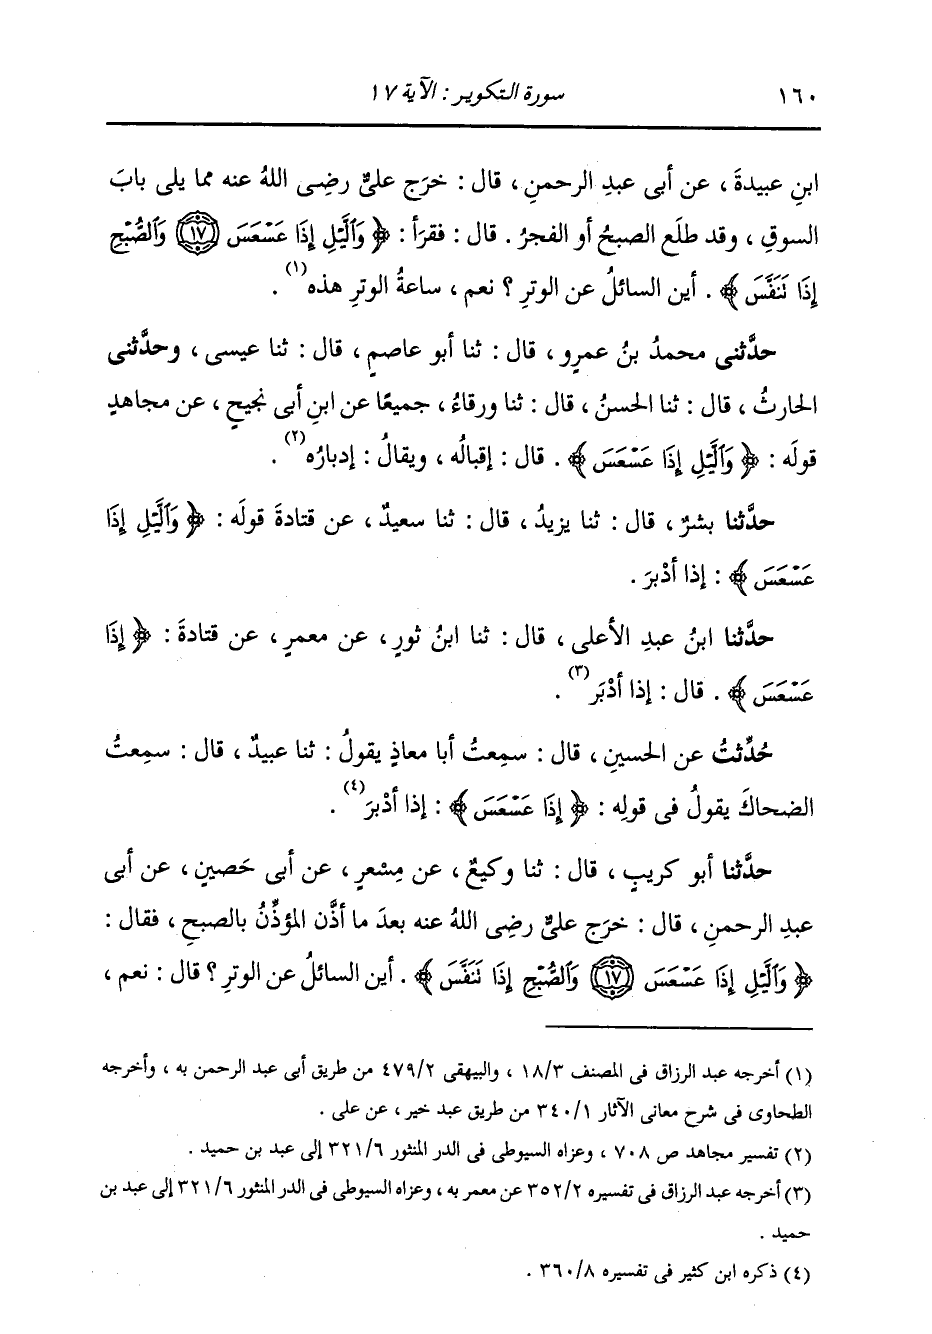 ١٦٠ سورة التكوير : الآية ١٧
ابنِ عبيدةَ ، عن أبى عبدِ الرحمنِ ، قال : خرَج علىٌّ رضِى اللهُ عنه مما يلى بابَ
السوقِ ، وقد طلَع الصبحُ أو الفجرُ . قال : فقرَأ : ﴿ وَٱلَّيْلِ إِذَا عَسْعَسَ ﴿١٧﴾ وَٱلصُّبْحِ
إِذَا تَنَفَّسَ ﴾ . أين السائلُ عن الوترِ ؟ نعم ، ساعةُ الوترِ هذه (١) .
حدَّثنى محمدُ بنُ عمرٍو ، قال : ثنا أبو عاصمٍ ، قال : ثنا عيسى ، وحدَّثنى
الحارثُ ، قال : ثنا الحسنُ ، قال : ثنا ورقاءُ ، جميعًا عن ابنِ أبى نجيحٍ ، عن مجاهدٍ
قولَه : ﴿ وَٱلَّيْلِ إِذَا عَسْعَسَ ﴾ . قال : إقبالُه ، ويقالُ : إدبارُه (٢) .
حدَّثنا بشرٌ ، قال : ثنا يزيدُ ، قال : ثنا سعيدٌ ، عن قتادةَ قولَه : ﴿ وَٱلَّيْلِ إِذَا
عَسْعَسَ ﴾ : إذا أدْبرَ .
حدَّثنا ابنُ عبدِ الأعلى ، قال : ثنا ابنُ ثورٍ ، عن معمرٍ ، عن قتادةَ : ﴿ إِذَا
عَسْعَسَ ﴾ . قال : إذا أدْبَر (٣) .
حُدِّثتُ عن الحسينِ ، قال : سمِعتُ أبا معاذٍ يقولُ : ثنا عبيدٌ ، قال : سمِعتُ
الضحاكَ يقولُ فى قولِه : ﴿ إِذَا عَسْعَسَ ﴾ : إذا أدْبرَ (٤) .
حدَّثنا أبو كريبٍ ، قال : ثنا وكيعٌ ، عن مِسْعرٍ ، عن أبى حَصينٍ ، عن أبى
عبدِ الرحمنِ ، قال : خرَج علىٌّ رضِى اللهُ عنه بعدَ ما أذَّن المؤذِّنُ بالصبحِ ، فقال :
﴿ وَٱلَّيْلِ إِذَا عَسْعَسَ ﴿١٧﴾ وَٱلصُّبْحِ إِذَا تَنَفَّسَ ﴾ . أين السائلُ عن الوترِ ؟ قال : نعم ،
(١) أخرجه عبد الرزاق فى المصنف ١٨/٣ ، والبيهقى ٤٧٩/٢ من طريق أبى عبد الرحمن به ، وأخرجه
الطحاوى فى شرح معانى الآثار ٣٤٠/١ من طريق عبد خير ، عن على .
(٢) تفسير مجاهد ص ٧٠٨ ، وعزاه السيوطى فى الدر المنثور ٣٢١/٦ إلى عبد بن حميد .
(٣) أخرجه عبد الرزاق فى تفسيره ٣٥٢/٢ عن معمر به ، وعزاه السيوطى فى الدر المنثور ٣٢١/٦ إلى عبد بن
حميد .
(٤) ذكره ابن كثير فى تفسيره ٣٦٠/٨ .